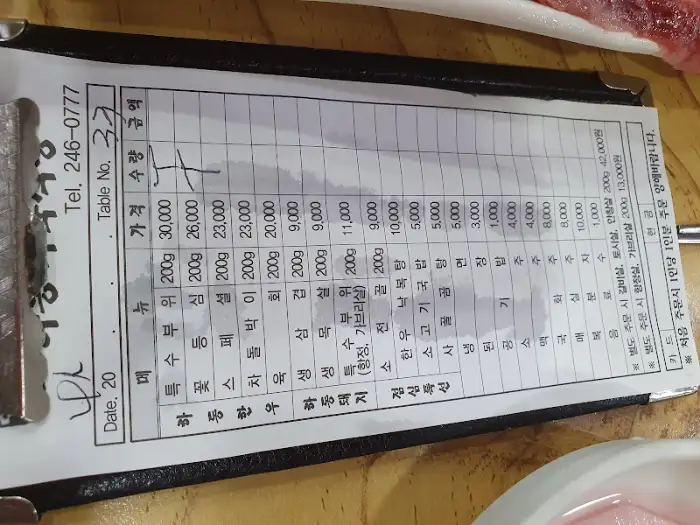 Tel. 246-0777
Date. 20 . . . Table No. 37
메 뉴 가 격 수 량 금 액
하동한우
특 수 부 위 200g 30,000
꽃 등 심 200g 26,000
스 페 셜 200g 23,000
차 돌 박 이 200g 23,000
육 회 200g 20,000
하동돼지
생 삼 겹 200g 9,000
생 목 살 200g 9,000
특 수 부 위 200g 11,000
(항정, 가브리살)
소 전 골 200g 9,000
점심특선
한 우 낙 복 탕 10,000
소 고 기 국 밥 5,000
사 골 곰 탕 5,000
냉 면 5,000
된 장 3,000
공 기 밥 1,000
소 주 4,000
맥 주 4,000
국 화 주 8,000
매 실 주 8,000
복 분 자 10,000
음 료 수 1,000
※ 별도 주문 시 갈비살, 토시살, 안창살 200g 42,000원
※ 별도 주문 시 항정살, 가브리살 200g 13,000원
카 드 현 금
※ 처음 주문시 1인당 1인분 주문 양해바랍니다.